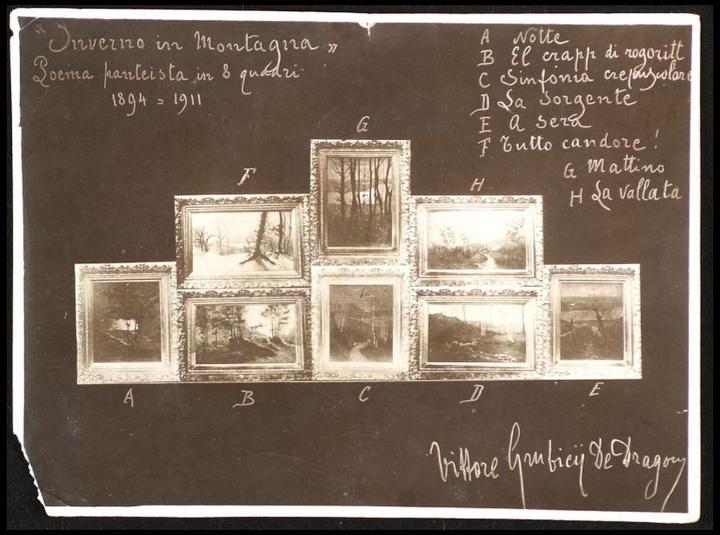 "Inverno in Montagna"
Poema panteista in 8 quadri
1894 = 1911
A Notte
B El crapp di rogoritt
C Sinfonia crepuscolare
D La Sorgente
E A Sera
F Tutto candore!
G Mattino
H La Vallata
G
F
H
A
B
C
D
E
Vittore Grubicij De Dragon